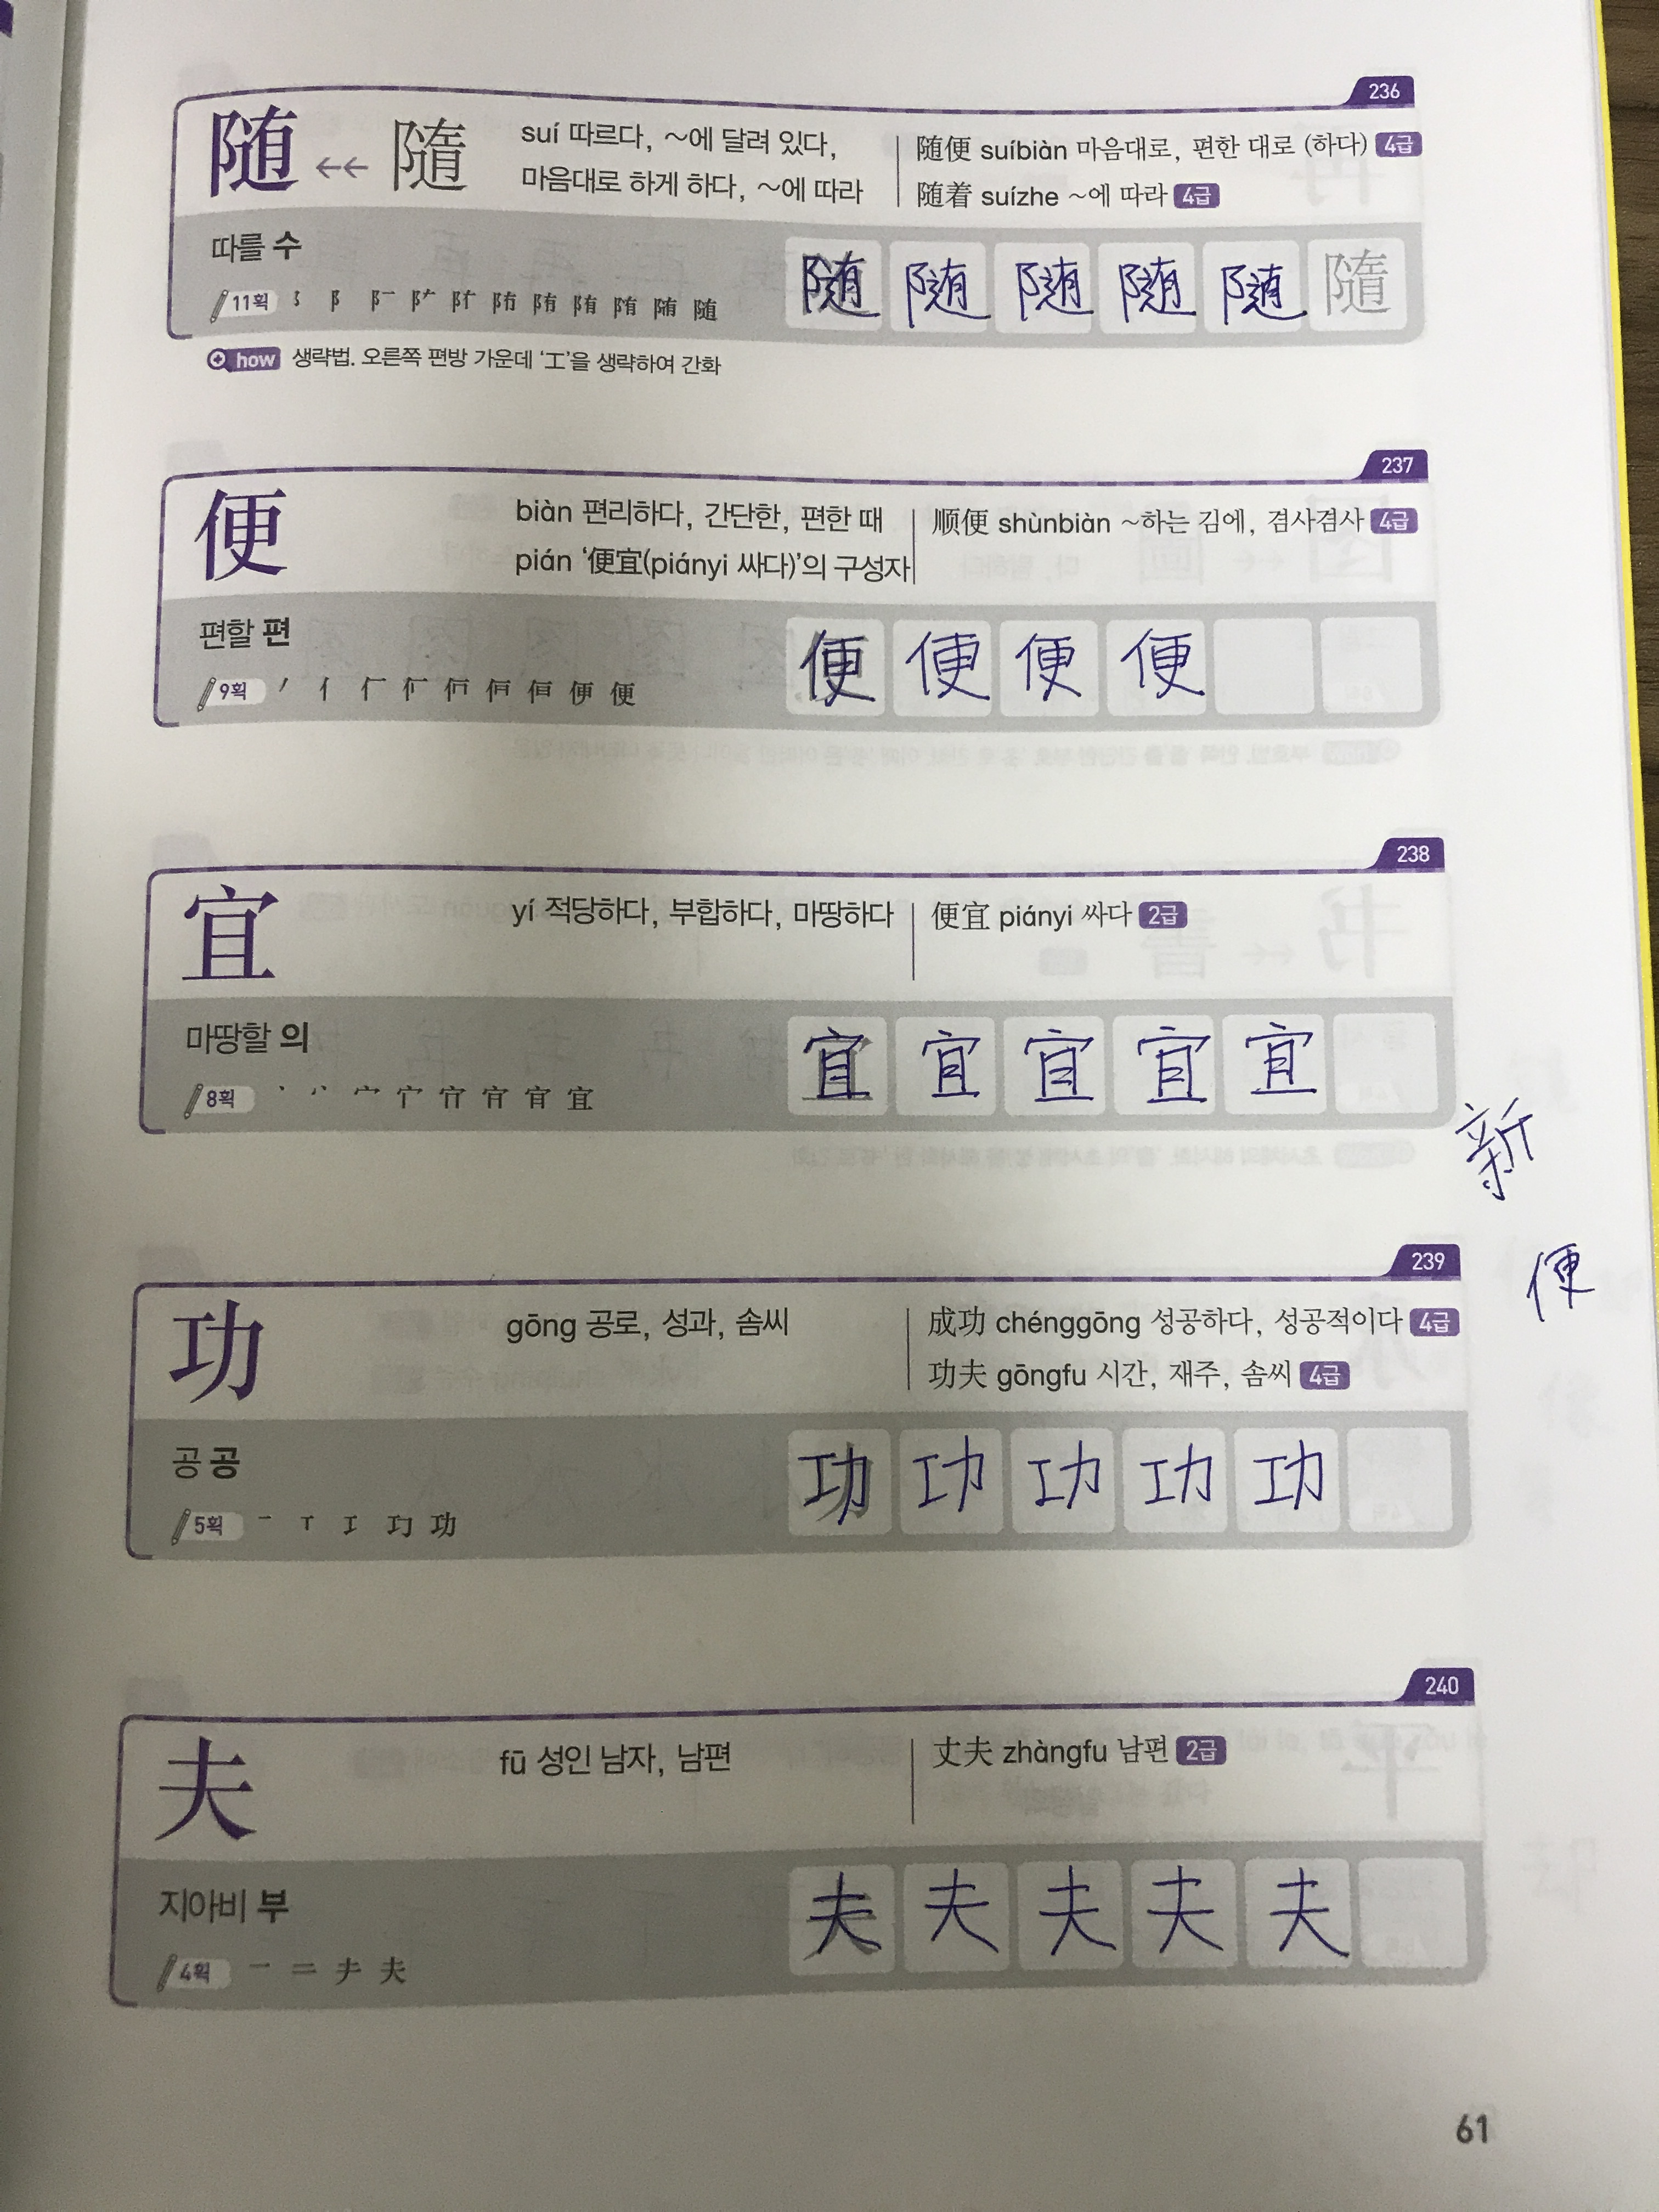 236
随 ←← 隨 suí 따르다, ~에 달려 있다,
마음대로 하게 하다, ~에 따라
随便 suíbiàn 마음대로, 편한 대로 (하다) 4급
随着 suízhe ~에 따라 4급
따를 수
11획
随 随 随 随 随 隨
how 생략법. 오른쪽 편방 가운데 '工'을 생략하여 간화
237
便 biàn 편리하다, 간단한, 편한 때
pián '便宜(piányi 싸다)'의 구성자
顺便 shùnbiàn ~하는 김에, 겸사겸사 4급
편할 편
9획
便 便 便 便
238
宜 yí 적당하다, 부합하다, 마땅하다
便宜 piányi 싸다 2급
마땅할 의
8획
宜 宜 宜 宜 宜
新
便
239
功 gōng 공로, 성과, 솜씨
成功 chénggōng 성공하다, 성공적이다 4급
功夫 gōngfu 시간, 재주, 솜씨 4급
공 공
5획 一 丅 工 功
功 功 功 功 功
240
夫 fū 성인 남자, 남편
丈夫 zhàngfu 남편 2급
지아비 부
4획 一 二 夫 夫
夫 夫 夫 夫 夫
61